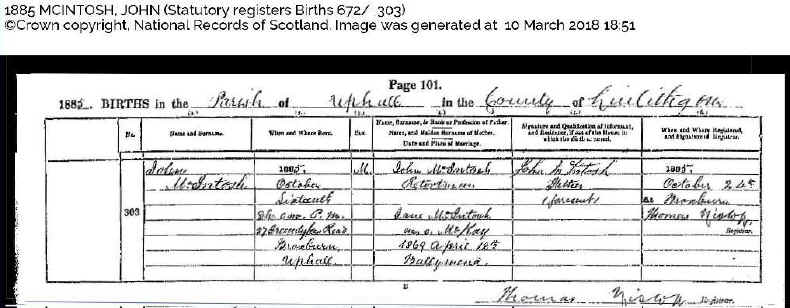 1885 MCINTOSH, JOHN (Statutory registers Births 672/ 303)
©Crown copyright, National Records of Scotland. Image was generated at 10 March 2018 18:51
Page 101.
1885. BIRTHS in the Parish of Uphall in the County of Linlithgow
No. Name and Surname. When and Where Born. Sex. Name, Surname, & Rank or Profession of Father. Name, and Maiden Surname of Mother. Date and Place of Marriage. Signature and Qualification of Informant, and Residence, if out of the House in which the Birth occurred. When and Where Registered, and Signature of Registrar.
303
John
McIntosh
1885,
October
Sixteenth
P. M.
Broxburn,
Uphall
M.
John McIntosh
Retortman
Jane McIntosh
m.s. McKay
1869 April 18th
Ballymena.
John McIntosh
Father
(present)
1885,
October 24th
At Broxburn
Thomas Nislop
Registrar.
Thomas Nislop Registrar.